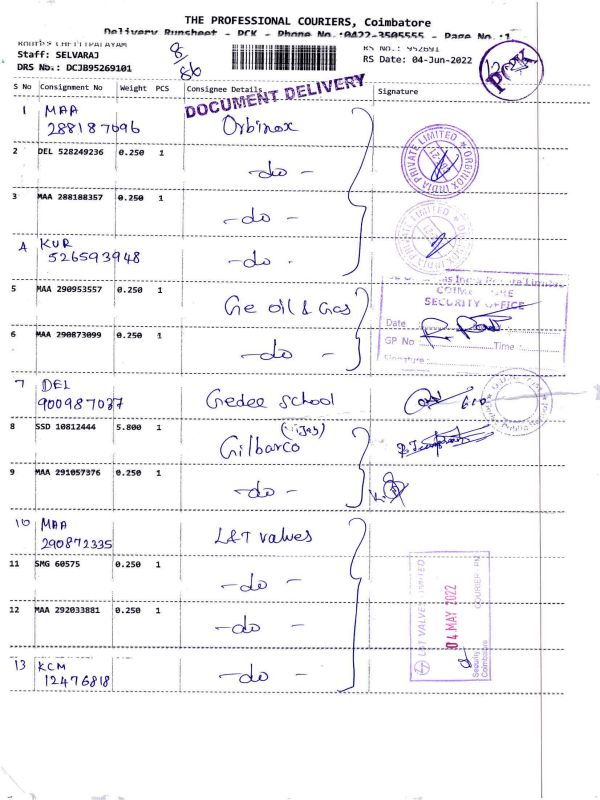 THE PROFESSIONAL COURIERS, Coimbatore
Delivery Runsheet - PCK - Phone No.:0422-3505555 - Page No.:1
Staff: SELVARAJ
DRS No.: DCJB95269101
8/86
RS No.: 952691
RS Date: 04-Jun-2022
PCK
S No Consignment No Weight PCS Consignee Details Signature
DOCUMENT DELIVERY
1 MAA 288187096 Orbinox
2 DEL 528249236 0.250 1 -do-
ORBINOX INDIA PRIVATE LIMITED
3 MAA 288188357 0.250 1 -do-
4 KUR 526593948 -do-
5 MAA 290953557 0.250 1 Ge oil & Gas
SECURITY OFFICE
Date
GP No : Time :
Signature :
6 MAA 290873099 0.250 1 -do-
7 DEL 900987037 Gedee school
8 SSD 10812444 5.800 1 Gilbarco
9 MAA 291057376 0.250 1 -do-
10 MAA 290872335 L&T valves
11 SMG 60575 0.250 1 -do-
12 MAA 292033881 0.250 1 -do-
13 KCM 12476818 -do-
L&T VALVES LIMITED
04 MAY 2022
Security
Coimbatore